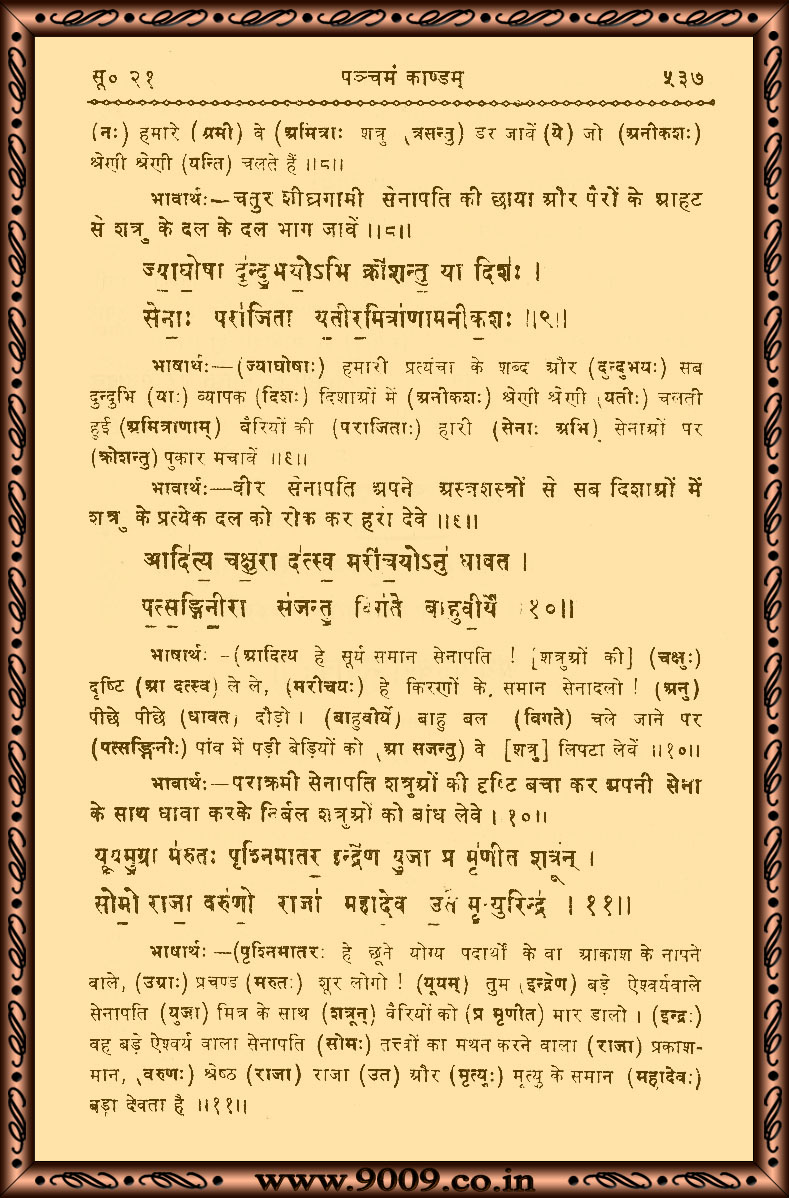 सू० २१ पञ्चमं काण्डम् ५३७
(नः) हमारे (अमी) वे (अमित्राः शत्रु (त्रसन्तु) डर जावें (ये) जो (अनीकशः)
श्रेणी श्रेणी (यन्ति) चलते हैं ॥८॥
भावार्थः—चतुर शीघ्रगामी सेनापति की छाया और पैरों के आहट
से शत्रु के दल के दल भाग जावें ॥८॥
ज्या॒घो॒षा दु॑न्दु॒भयो॒ऽभि क्रो॑शन्तु॒ या दिशः॑ ।
सेनाः॒ परा॑जिता य॒तीर॒मित्रा॑णामनीक॒शः ॥९॥
भाषार्थः—(ज्याघोषाः) हमारी प्रत्यंचा के शब्द और (दुन्दुभयः) सब
दुन्दुभि (याः) व्यापक (दिशः) दिशाओं में (अनीकशः) श्रेणी श्रेणी (यतीः) चलती
हुई (अमित्राणाम्) वैरियों की (पराजिताः) हारी (सेनाः अभि) सेनाओं पर
(क्रोशन्तु) पुकार मचावें ॥६॥
भावार्थः—वीर सेनापति अपने अस्त्रशस्त्रों से सब दिशाओं में
शत्रु के प्रत्येक दल को रोक कर हरा देवे ॥६॥
आदि॑त्य॒ चक्षु॒रा द॑त्स्व॒ मरी॑च॒योऽनु॑ धावत ।
प॒त्स॒ङ्गिनी॒रा स॑जन्तु॒ विग॑ते बाहुवी॒र्ये॑ १०॥
भाषार्थः -(आदित्य हे सूर्य समान सेनापति ! [शत्रुओं की] (चक्षुः)
दृष्टि (आ दत्स्व) ले ले, (मरीचयः) हे किरणों के, समान सेनादलो ! (अनु)
पीछे पीछे (धावत) दौड़ो । (बाहुवीर्ये) बाहु बल (विगते) चले जाने पर
(पत्सङ्गिनीः) पांव में पड़ी बेड़ियों को (आ सजन्तु) वे [शत्रु] लिपटा लेवें ॥१०॥
भावार्थः—पराक्रमी सेनापति शत्रुओं की दृष्टि बचा कर अपनी सेना
के साथ धावा करके निर्बल शत्रुओं को बांध लेवे । १०॥
यू॒यमु॒ग्रा म॑रुतः पृश्निमातर॒ इन्द्रे॑ण यु॒जा प्र मृ॑णीत॒ शत्रू॑न् ।
सोमो॒ राजा॒ वरु॑णो॒ राजा॑ महादे॒व उ॒त मृ॒त्युरिन्द्रः॑ । ११॥
भाषार्थः—(पृश्निमातरः हे छूने योग्य पदार्थों के वा आकाश के नापने
वाले, (उग्राः) प्रचण्ड (मरुतः) शूर लोगो ! (यूयम्) तुम (इन्द्रेण) बड़े ऐश्वर्यवाले
सेनापति (युजा) मित्र के साथ (शत्रून्) वैरियों को (प्र मृणीत) मार डालो । (इन्द्रः)
वह बड़े ऐश्वर्य वाला सेनापति (सोमः) तत्त्वों का मथन करने वाला (राजा) प्रकाश-
मान, (वरुणः) श्रेष्ठ (राजा) राजा (उत) और (मृत्युः) मृत्यु के समान (महादेवः)
बड़ा देवता है ॥११॥
www.9009.co.in